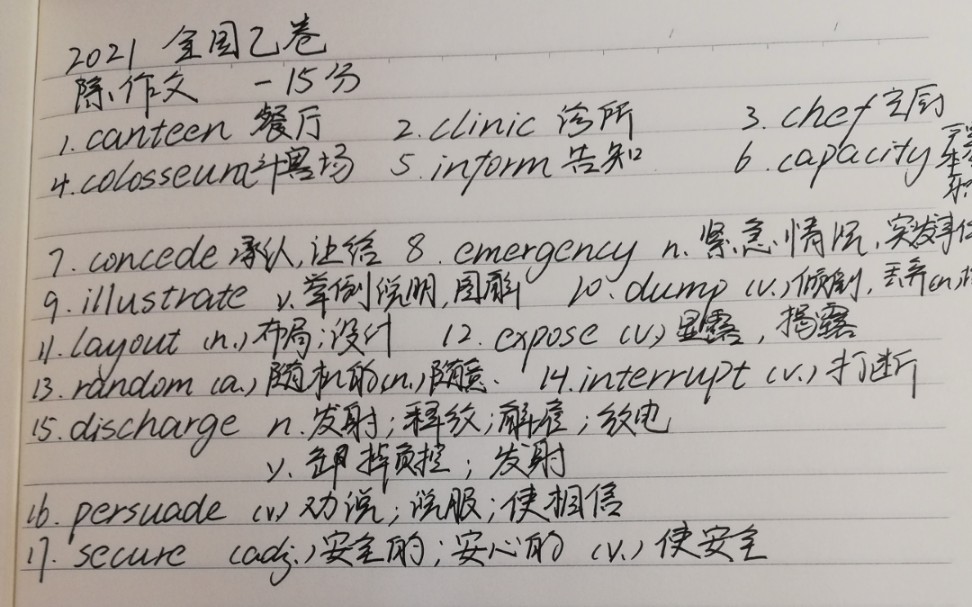 2021 全国乙卷
除作文 -15分
1. canteen 餐厅 2. clinic 诊所 3. chef 主厨
4. colosseum 斗兽场 5. inform 告知 6. capacity
7. concede 承认,让给 8. emergency n. 紧急情况,突发事件
9. illustrate v. 举例说明,图解 10. dump (v.)倾倒,丢弃(n.)
11. layout (n.)布局;设计 12. expose (v.)显露,揭露
13. random (a.)随机的(n.)随意. 14. interrupt (v.)打断
15. discharge n. 发射;释放;解雇;放电
v. 卸掉负控;发射
16. persuade (v.)劝说;说服;使相信
17. secure (adj.)安全的;安心的 (v.)使安全